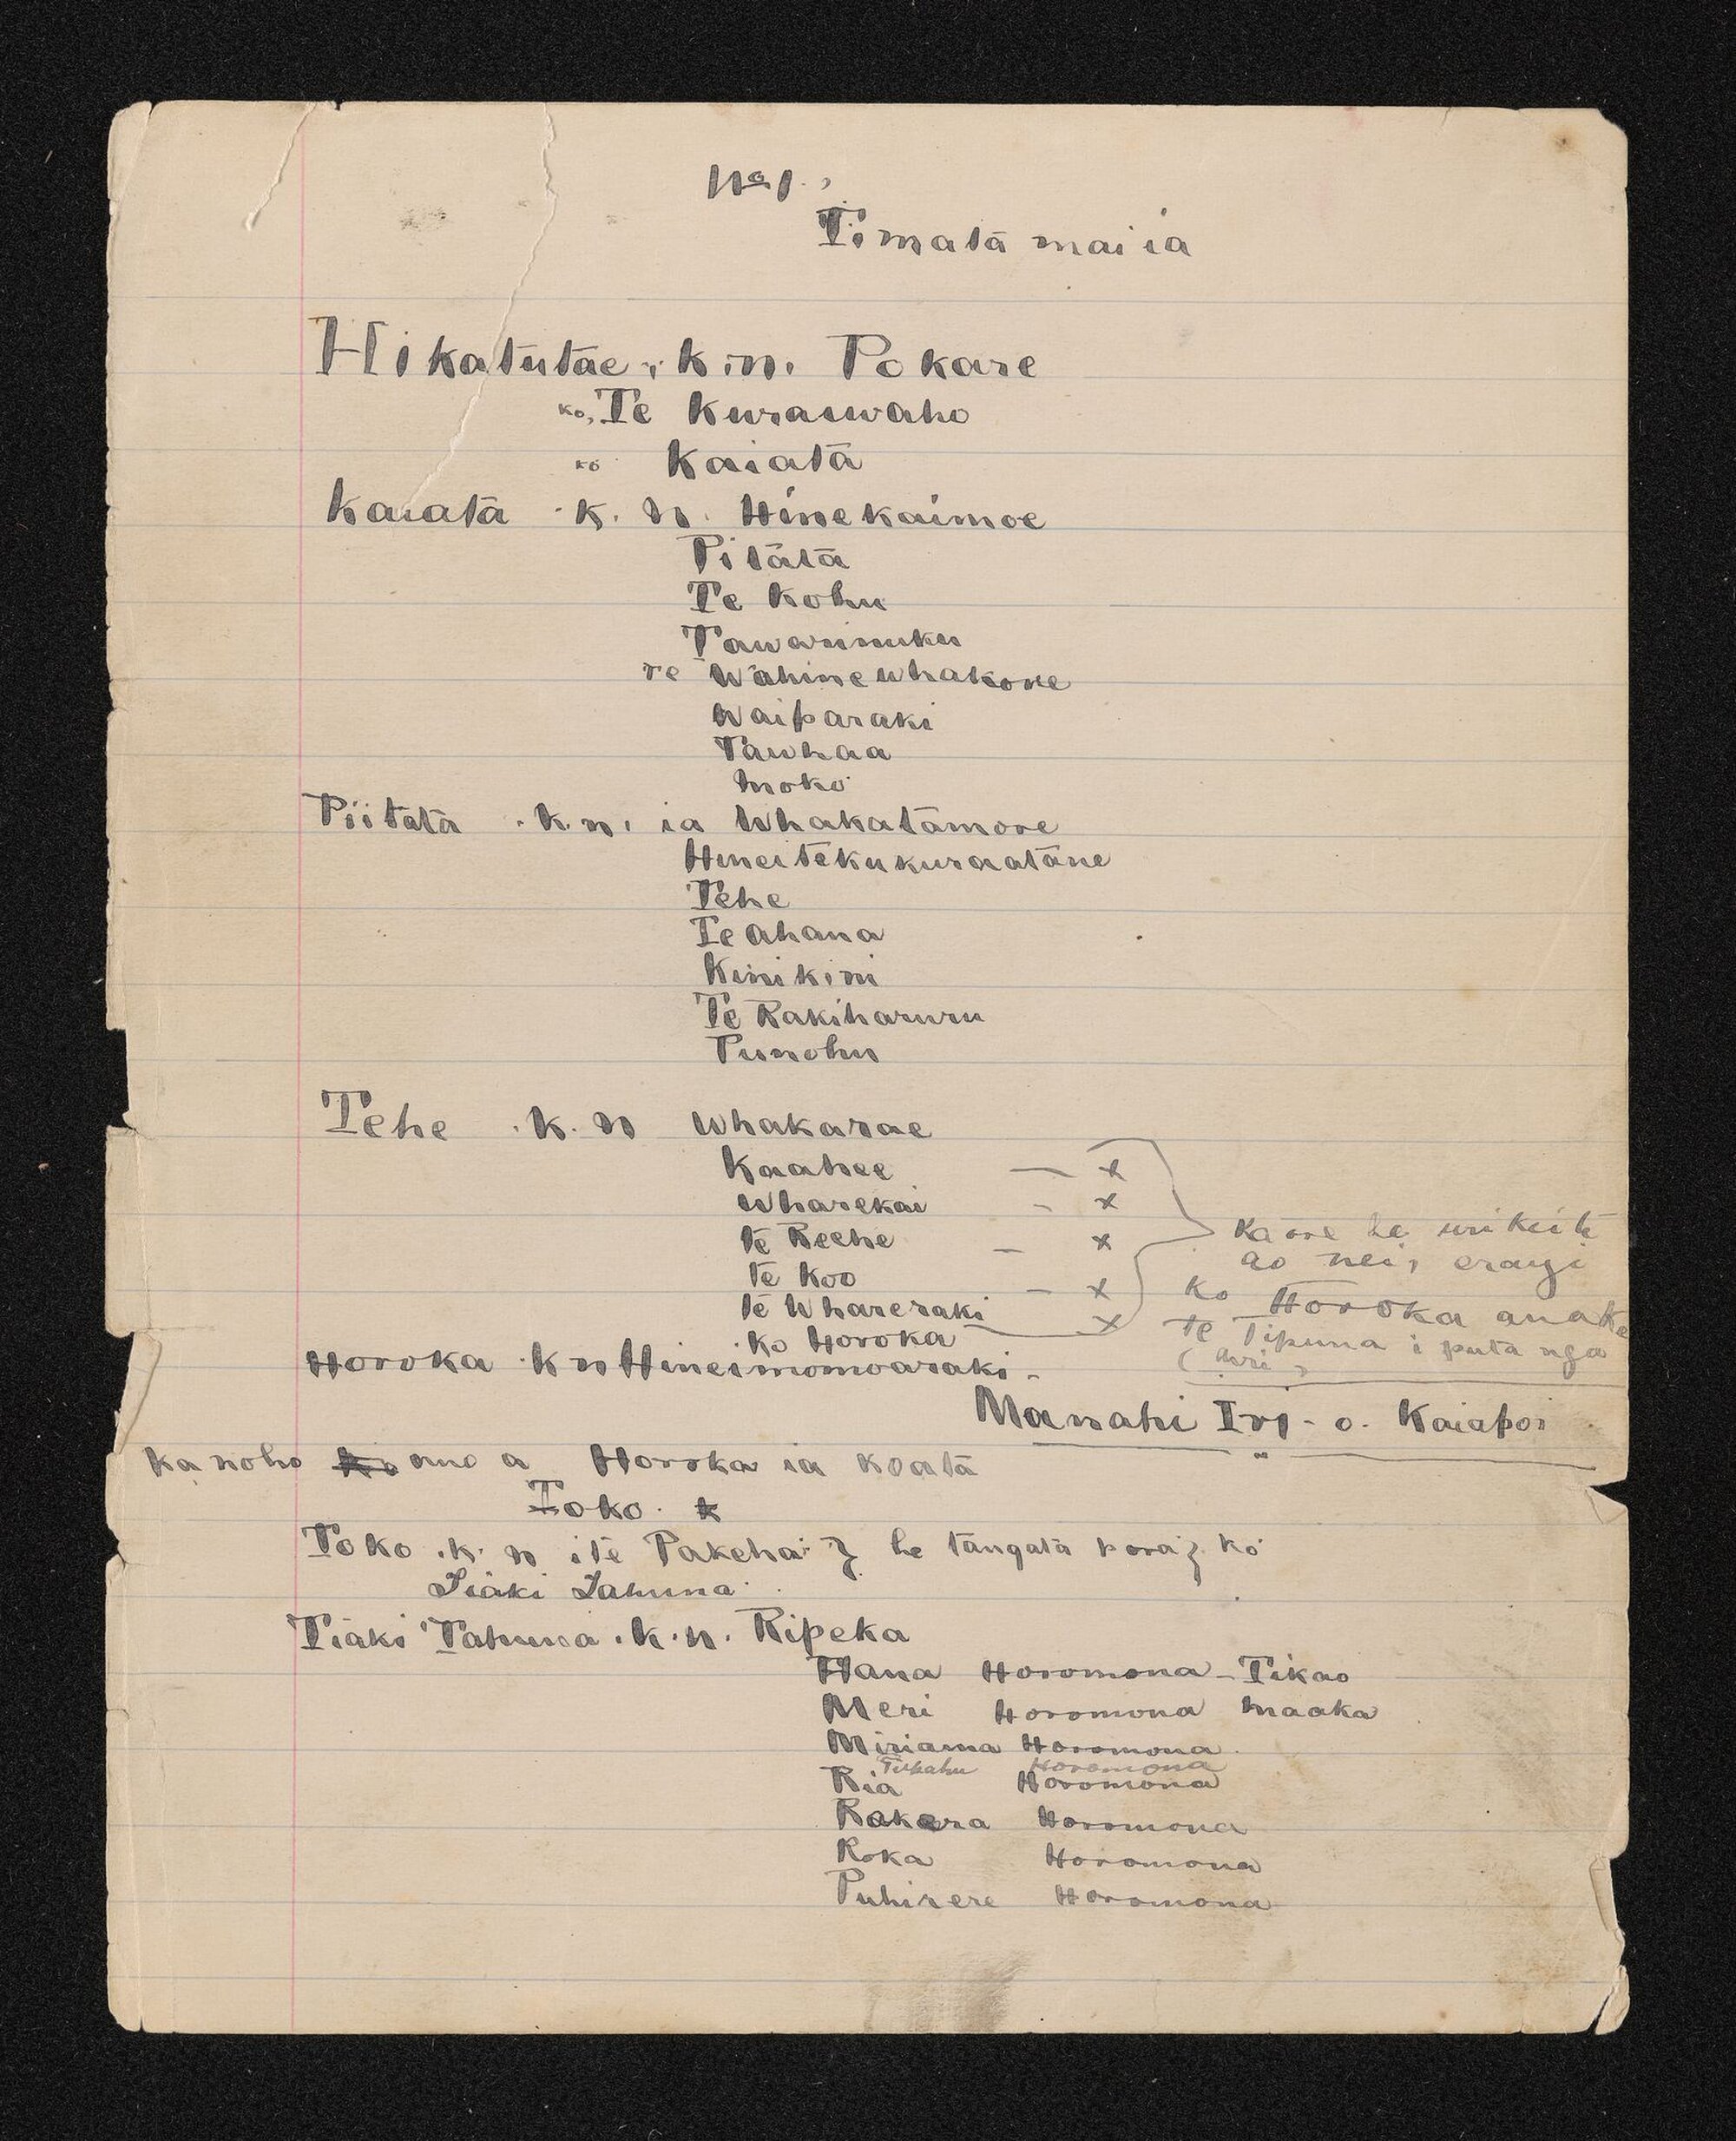 No 1.
Timata mai ia
Hikatutae, k.n. Pokare
ko, Te Kurawaho
ko Kaiata
Kaiata . K. N. Hinekaimoe
Pitata
Te Kohu
Tawarinuku
Te Wahinewhakore
Waiparaki
Tauhaa
Moko
Piitata . K. n. ia Whakatamore
Hineitekukuraatane
Tehe
Te Ahana
Kinikini
Te Rakiharuru
Punohu
Tehe . K. N Whakarae
Kaahee — x
Wharekai - x
te Reehe — x
te Koo — x
te Whareraki — x
Kaore he uri kei te
ao nei, erangi
ko Horoka anake
te Tipuna i puta nga
(Uri)
. Ko Horoka
Horoka . K n Hineimomoaraki.
Manahi Iri - o. Kaiapoi
Ka noho ano a Horoka ia Koata
Toko.
Toko . K. n ite Pakeha; he tangata pora; ko
Tiaki Tahuna
Tiaki Tahuna . K. n. Ripeka
Hana Horomona - Tikao
Meri Horomona Maaka
Miriama Horomona
Horomona
Ria Horomona
Rakera Horomona
Roka Horomona
Puhirere Horomona